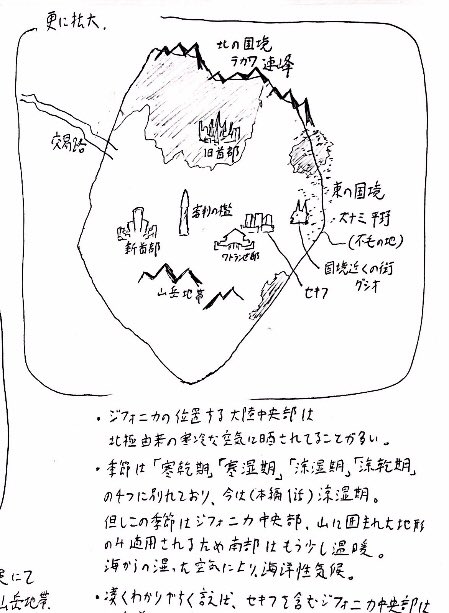 更に拡大。
北の国境
ラカワ連峰
交易路
旧首都
東の国境
大ナミ平野
(不毛の地)
審判の檻
新首都
ワトランゼ邸
国境近くの街
グシオ
セキフ
山岳地帯
・ジフォニカの位置する大陸中央部は
北極由来の寒冷な空気に晒されてることが多い。
・季節は「寒乾期」「寒湿期」「涼湿期」「涼乾期」
の4つに別れており、今は(本編1話)涼湿期。
但しこの季節はジフォニカ中央部、山に囲まれた地形
のみ適用されるため南部はもう少し温暖。
海からの湿った空気により、海洋性気候。
山岳地帯
・凄くわかりやすく言えば、セキフを含むジフォニカ中央部は